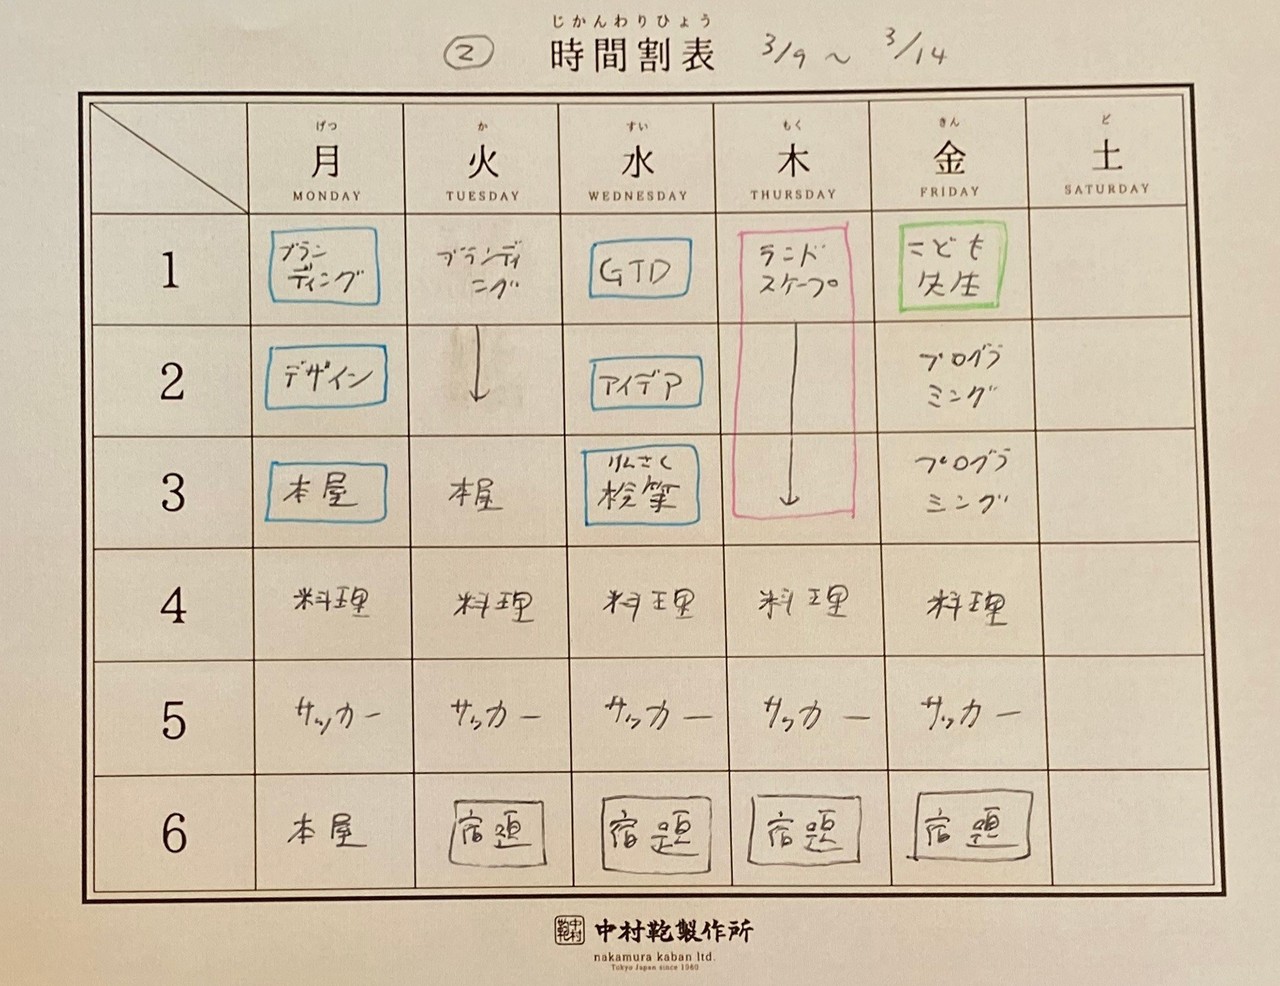 じかんわりひょう
② 時間割表 3/9 〜 3/14
げつ か すい もく きん ど
月 火 水 木 金 土
MONDAY TUESDAY WEDNESDAY THURSDAY FRIDAY SATURDAY
1
ブラン
ディング
ブランディ
ング
GTD
ランド
スケープ
こども
先生
2
デザイン
アイデア
プログラ
ミング
3
本屋
本屋
けんさく
検策
プログラ
ミング
4
料理
料理
料理
料理
料理
5
サッカー
サッカー
サッカー
サッカー
サッカー
6
本屋
宿題
宿題
宿題
宿題
中村鞄 中村鞄製作所
nakamura kaban ltd.
Tokyo Japan since 1960